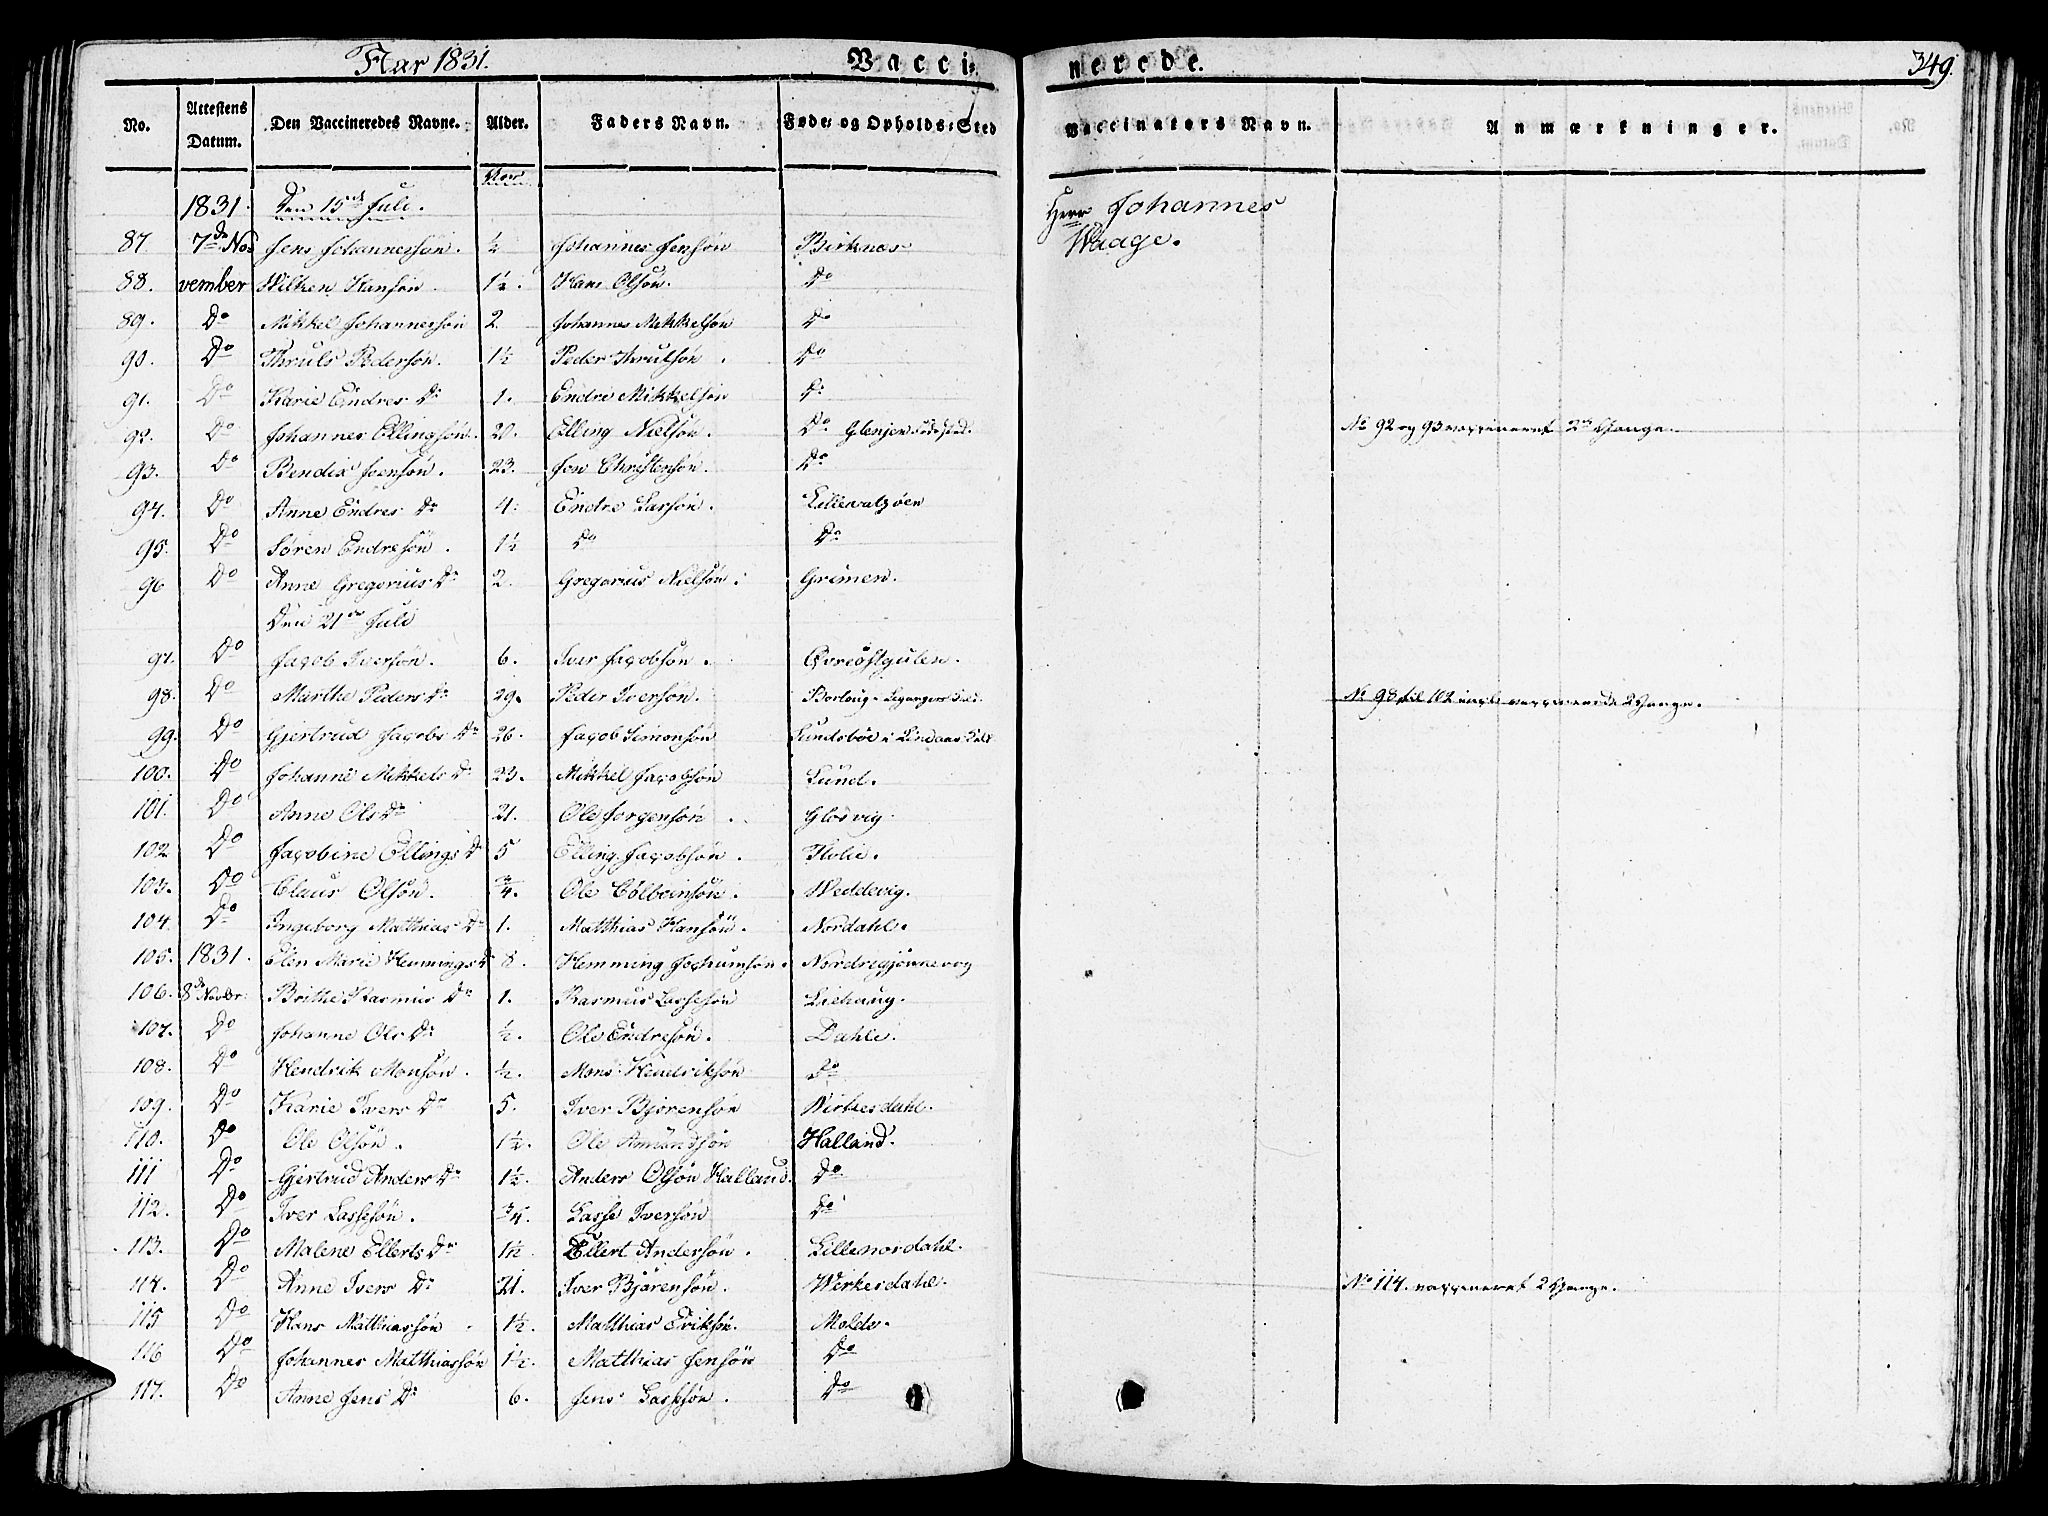 I Aar 1831.
Vacci=
nerede.
349.
No. Attestens Datum. Den Vaccineredes Navne. Alder. Faders Navn. Føde= og Opholds=Sted Vaccinators Navn. Anmærkninger.
Aar
1831. Den 15de Juli. Herr Johannes
87 7de No= Jens Johannessøn. ½ Johannes Jensøn Birknes Waage.
88. vember Wilken Hansøn. 1½. Hans Olsøn. Do
89. Do Mikkel Johannessøn 2. Johannes Mikkelsøn Do
90. Do Thruls Pedersøn. 1½ Peder Thrulsøn. Do
91. Do Karie Endres Dr 1. Endre Mikkelsøn Do
92. Do Johannes Ellingsøn. 20. Elling Nielsøn. Do No 92 og 93 vaccineret 2den Gange.
93. Do Bendix Joensøn. 23. Jon Christensøn. Do
94. Do Anne Endres Dr 4. Endre Larsøn. Lillevatzøen
95. Do Søren Endresøn. 1½ Do Do
96 Do Anne Gregorius Dr 2. Gregorius Nielsøn. Grimen.
Den 21de Juli
97. Do Jacob Iversøn. 6. Iver Jacobsøn. Øvreøstgulen.
98. Do Marthe Peders Dr 29. Peder Iversøn. No 98 til 102 incl. vaccinerede 2 Gange.
99. Do Gjertrud Jacobs Dr 26. Jacob Simonsøn Lundsbøe i Lindaas
100. Do Johanne Mikkels Dr 23. Mikkel Jacobsøn Lund.
101. Do Anne Ols Dr 21. Ole Jørgensøn Glosvig.
102 Do Jacobine Ellings Dr 5 Elling Jacobsøn. Holie.
103. Do Claus Olsøn. ¾. Ole Colbeinsøn. Weddevig.
104. Do Ingeborg Matthias Dr 1. Matthias Hansøn. Nordahl.
105. 1831. Elen Marie Hemmings Dr 8. Hemming Jochumsøn. Nordregjønnevog
106. 8de Novbr: Brithe Rasmus Dr 1. Rasmus Lassesøn Liehaug.
107. Do Johanne Ols Dr ½. Ole Endresøn. Dahle.
108. Do Hendrik Monsøn. ½. Mons Hendriksøn Do
109. Do Karie Ivers Dr 5. Iver Bjørensøn Wirkesdahl.
110. Do Ole Olsøn. 1½. Ole Amundsøn Halland.
111 Do Gjertrud Anders Dr 1½. Anders Olsøn Halland. Do
112. Do Iver Lassesøn. ¾. Lasse Iversøn Do
113. Do Malene Ellerts Dr 1½. Ellert Andersøn. Lillenordahl.
114. Do Anne Ivers Dr 21. Iver Bjørensøn. Werkesdahl. No 114. vaccineret 2 Gange.
115 Do Hans Matthiassøn 1½. Matthias Eriksøn. Molde.
116 Do Johannes Matthiassøn 1½. Matthias Jensøn Do
117. Do Anne Jens Dr 6. Jens Lassesøn. Do